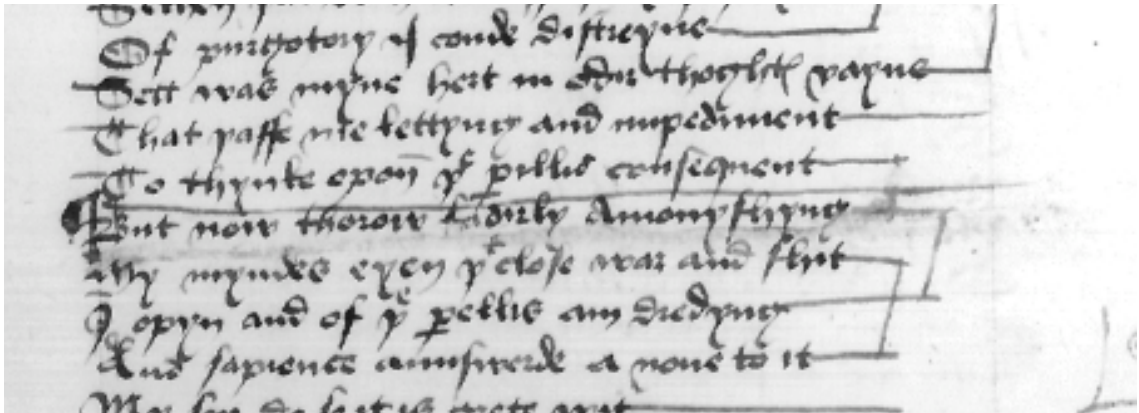 Of purgotory if conde distreyne
Sett was myne hert in odir thoght vayne
That passe me lettyng and impediment
To thynke opon þe perillis consequent
But now thorow tendirly Amonysshyng
My myndes eyen þt close war and shit
I opyn and of þe perellis am dredyng
And sapience aunswerde a none to it